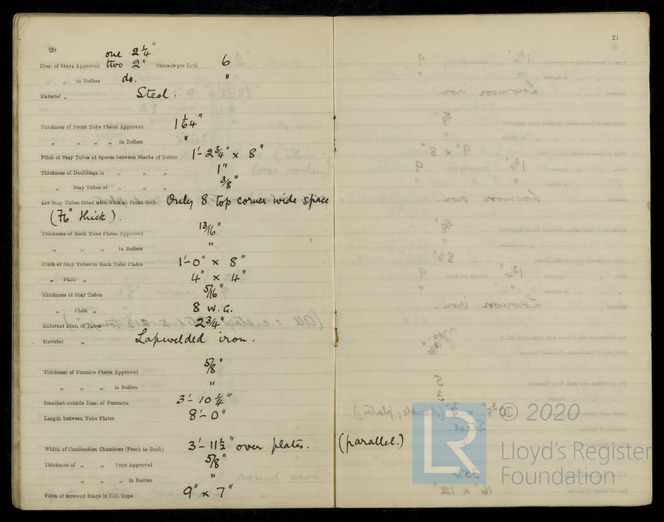 20
one 2 1/4"
Diam. of Stays Approved two 2" Threads per Inch 6
" " in Boilers do. "
Material " Steel.
Thickness of Front Tube Plates Approved 1 1/64"
" " " " in Boilers "
Pitch of Stay Tubes at Spaces between Stacks of Tubes 1'-2 3/4" x 8"
Thickness of Doublings in " " " 1"
" Stay Tubes at " " " 3/8"
Are Stay Tubes fitted with Nuts at Front End Only 8 top corner wide space
(7/16" thick).
Thickness of Back Tube Plates Approved 13/16"
" " " in Boilers "
Pitch of Stay Tubes in Back Tube Plates 1'-0" x 8"
" Plain " 4" x 4"
Thickness of Stay Tubes 5/16"
" Plain " 8 W.G.
External Diar. of Tubes 2 3/4"
Material " Lapwelded iron.
Thickness of Furnace Plates Approved 5/8"
" " " in Boilers "
Smallest outside Diar. of Furnaces 3'-10 1/4"
Length between Tube Plates 8'-0"
Width of Combustion Chambers (Front to Back) 3'-11 1/2" over plates. (parallel.)
Thickness of " " Tops Approved 5/8"
" " " " in Boilers "
Pitch of Screwed Stays in C.C. Tops 9" x 7"
21
© 2020
LR
Lloyd's Register
Foundation